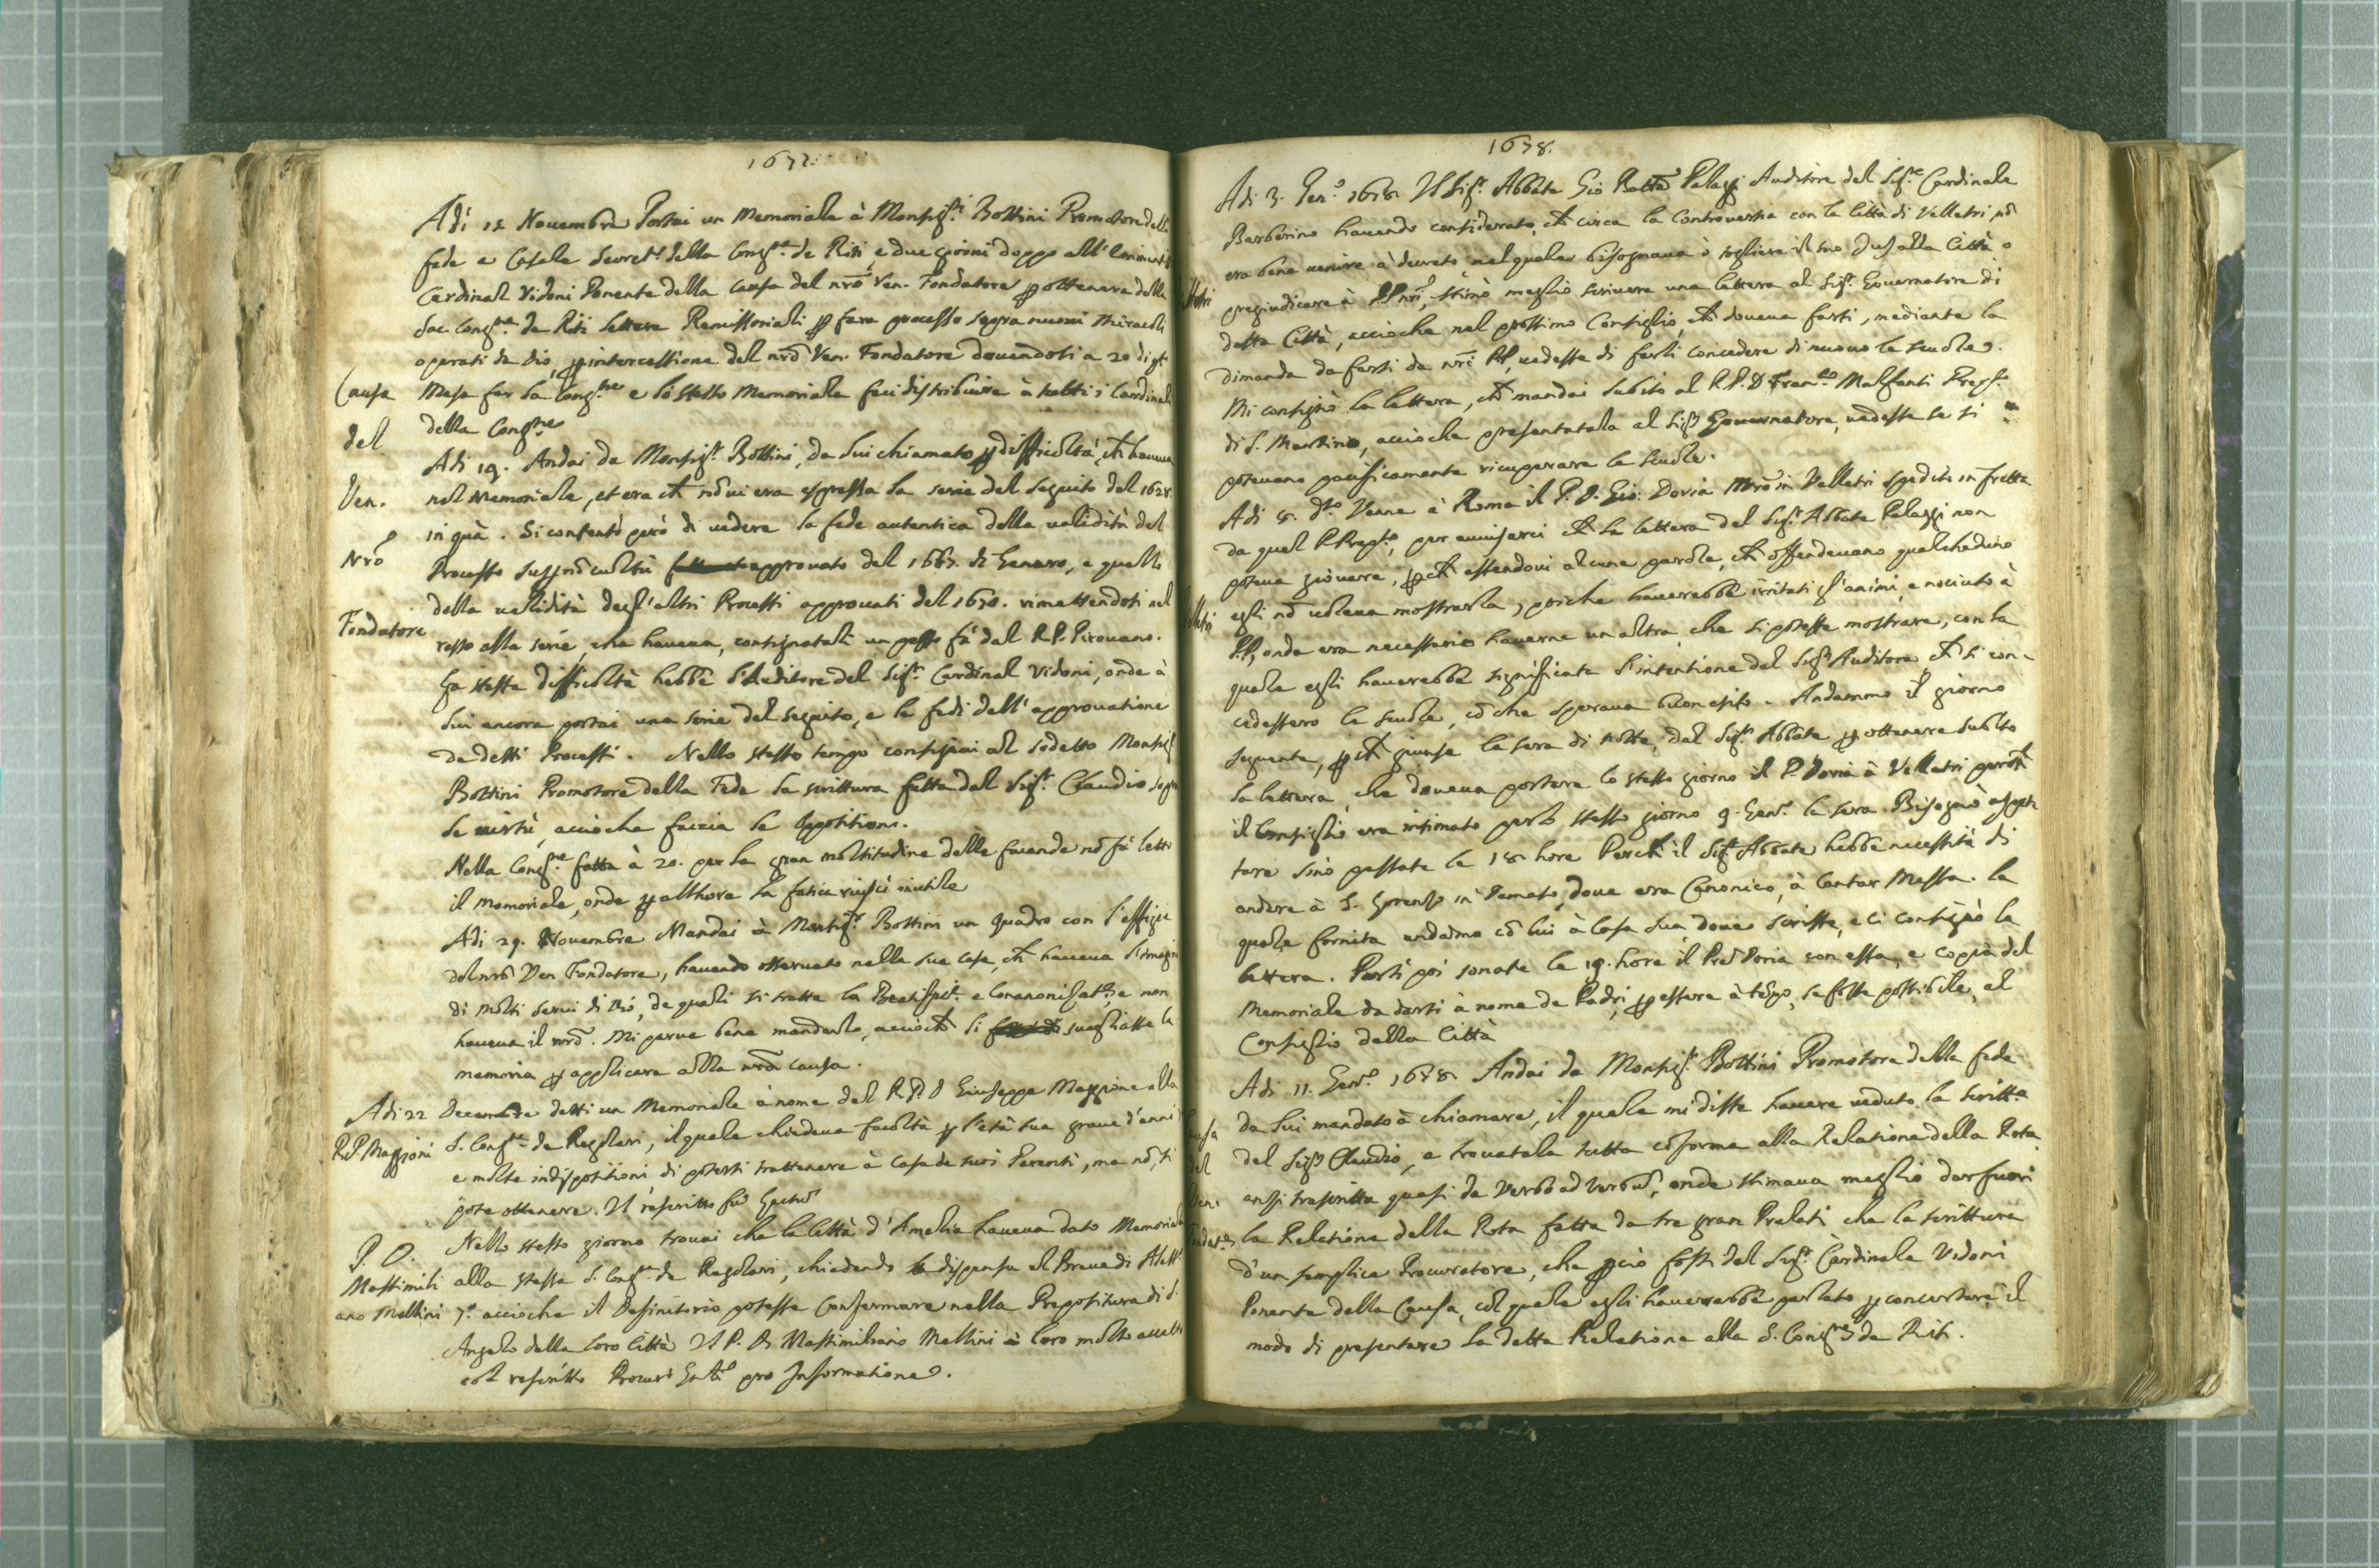 1677.
Adi 15 Nouembre Portai un Memoriale à Monsig.r Bottini Promotore della
fede e Casale Secret.o della Cong.ne de Riti e due giorni doppo all'
Cardinal Vidoni Ponente della Causa del nrō Ven. Fondatore p ottenere dalla
Sac Cong.ne de Riti lettere Remissoriali p fare processo sopra nuoui Miracoli
operati da Dio, p intercessione del nrō Ven. Fondatore douendosi a 20 di q.to
Causa
Mese far la Cong.ne e lo stesso Memoriale feci distribuire à tutti i Cardinali
del
della Cong.ne
Adi 19. Andai da Monsig.r Bottini, da lui chiamato p difficoltà, ch haueua
Ven.
nel Memoriale, et era ch nō ui era espressa la serie del seguito del 1628.
in quà. Si contentò però di uedere la fede autentica della ualidità del
Nrō
Processo sup nō cultu approuato del 1667. di Genaro, e quello
della ualidità degl'altri Processi approuati del 1670. rimettendosi nel
Fondatore
resto alla serie, che haueua, consignatali un pezzo fà dal R.P. Pirouano.
La stessa difficoltà hebbe l'Auditore del Sig.r Cardinal Vidoni, onde à
lui ancora portai una serie del seguito, e le fedi dell'approuatione
de detti Processi. Nello stesso tempo consignai al sodetto Monsig.r
Bottini Promotore della Fede la scrittura fatta dal Sig.r Claudio sopra
le uirtù, accioche faccia le Oppositioni.
Nella Cong.ne fatta à 20. per la gran moltitudine delle facende nō fù letto
il memoriale, onde p allhora la fatica riuscì inutile
Adi 29. Nouembre Mandai à Monsig.r Bottini un Quadro con l'effigie
del nrō Ven Fondatore, hauendo osseruato nella sua casa, ch haueua l'imagini
di molti serui di Dio, de quali si tratta la e non
haueua il nrō. Mi parue bene mandarlo, acciochè si suegliasse la
memoria p applicare alla nrā causa.
Adi 22 Decembre detti un Memoriale à nome del R.P. D Giuseppe Maggione alla
R.P. Maggioni
S. Cong.ne de Regolari, il quale chiedeua facoltà p l'età sua graue d'anni
e molte indispositioni di potersi trattenere à casa de suoi Parenti, ma nō si
potè ottenere. Il rescritto fù Lectū
Nello stesso giorno trouai che la Città d'Amelia haueua dato Memoriale
P. D.
Massimili
alla stessa S. Cong.ne de Regolari, chiedendo dispensa al Breue di Aless.o
ano Mellini
7.o accioche il Definitorio potesse confermare nella Prepositura di S.
Angelo della loro Città Il P. D. Massimiliano Mellini à loro molto accetto
col rescritto Procuri Gnli pro Informatione.
1678.
Adi 3. Gen.o 1678. Il Sig.r Abbate Gio Batta Palazzi Auditore del Sig.e Cardinale
Barberino hauendo considerato, ch circa la Controuersia con la Città di Velletri nō
era bene uenire à decreto nel quale bisognaua ò togliere il suo Jus alla Città o
lletri
pregiudicare à PP nrī, stimò meglio scriuere una lettera al Sig.r Gouernatore di
detta Città, accioche nel prossimo Consiglio, ch doueua farsi, mediante la
dimanda da farsi da nrī PP, uedesse di farli concedere di nuouo le scuole.
Mi consignò la lettera, ch mandai subito al R.P. D Fran.co Malfanti Prep.to
di S. Martino, accioche presentatala al Sig.r Gouernatore, uedesse se si
poteuano pacificamente ricuperare le scuole.
Adi 8. d.to Venne à Roma il P. D. Gio: Doria Mrō in Velletri spedito in fretta
da quel P. Prep.to, per auuisarci ch la lettera del Sig.r Abbate Palazzi non
poteua giouare, p ch essendoui alcune parole, ch offendeuano qualcheduno
lletri
egli nō uoleua mostrarla, poiche hauerebbe irritati gl'animi, e nociuto à
PP, onde era necessario hauerne un altra, che si potesse mostrare, con la
quale egli hauerebbe significata l'intentione del Sig.r Auditore, ch si con-
cedessero le scuole, cō che speraua buon esito. Andammo il giorno
seguente, p ch giunse la sera di notte, dal Sig.r Abbate p ottenere subito
la lettera, che doueua portare lo stesso giorno il P. Doria à Velletri perch
il Consiglio era intimato per lo stesso giorno 9. Gen.o la sera. Bisognò aspet-
tare sino passate le 18. hore Perchè il Sig.r Abbate hebbe necessità di
andare à S. Lorenzo in Damaso, doue era Canonico, à Cantar Messa. la
quale fornita andamo cō lui à Casa sua doue scrisse, e ci consignò la
lettera. Partì poi sonate le 19. hore il Pred Doria con essa, e coppia del
Memoriale da darsi à nome de Padri, p essere à tēpo, se fosse possibile, al
Consiglio della Città
Adi 11. Gen.o 1678. Andai da Monsig.r Bottini Promotore della fede
Causa
da lui mandato à chiamare, il quale mi disse hauere ueduto la scritt.a
del
del Sig.r Claudio, e trouatala tutta cōforme alla Relatione della Rota
Ven.
anzi trascritta quasi de Verbo ad verbū, onde stimaua meglio dar fuori
la Relatione della Rota fatta da tre gran Prelati che la scrittura
d'un semplice Procuratore, che p ciò fossi dal Sig.r Cardinale Vidoni
Ponente della Causa, col quale egli hauerebbe parlato p concertare il
modo di presentare la detta Relatione alla S. Cong.ne de Riti.